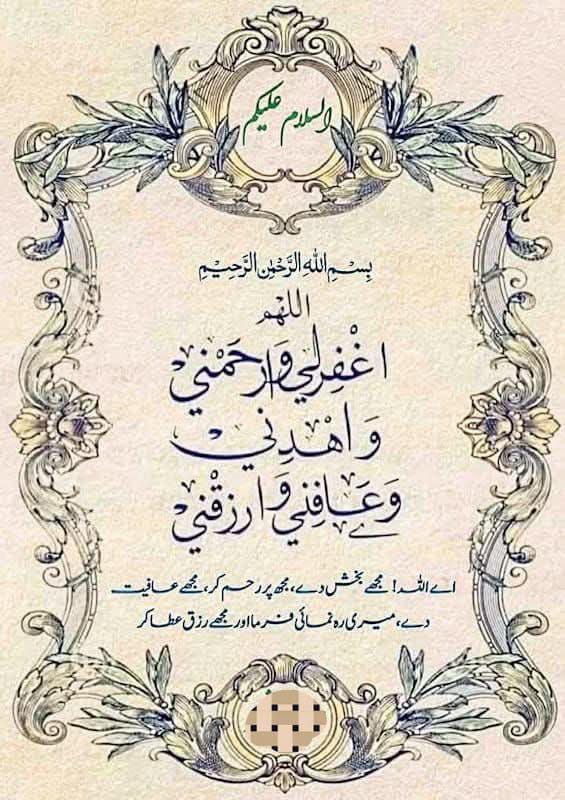 السلام علیکم
بِسْمِ اللهِ الرَّحْمٰنِ الرَّحِيْمِ
اللهم
اغْفِرْلِي وَارْحَمْنِي
وَاهْدِنِي
وَعَافِنِي وَارْزُقْنِي
اے اللہ! مجھے بخش دے، مجھ پر رحم کر، مجھے عافیت
دے، میری رہ نمائی فرما اور مجھے رزق عطا کر